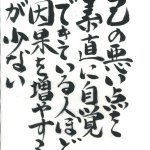 己の悪い点を
素直に自覚
できている人ほど
因果を増やす
が少ない